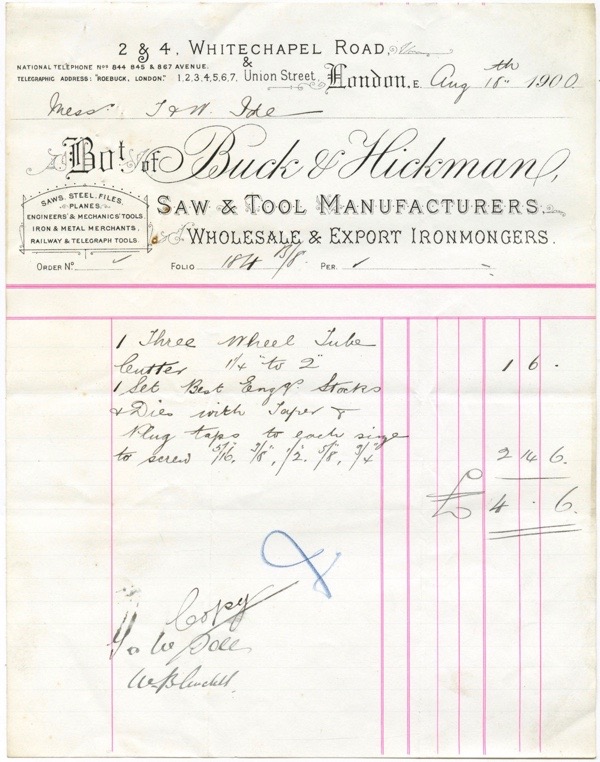 2 & 4, WHITECHAPEL ROAD,
&
NATIONAL TELEPHONE Nos 844 845 & 867 AVENUE.
TELEGRAPHIC ADDRESS: "ROEBUCK, LONDON."
1,2,3,4,5,6,7, Union Street, London, E. Aug 18th 1900
Messrs T & W. Ide
Bot. of Buck & Hickman,
SAWS, STEEL, FILES,
PLANES,
ENGINEERS' & MECHANICS' TOOLS,
IRON & METAL MERCHANTS,
RAILWAY & TELEGRAPH TOOLS.
SAW & TOOL MANUFACTURERS.
WHOLESALE & EXPORT IRONMONGERS.
ORDER No. FOLIO 184 3/8 PER
1 Three Wheel Tube
Cutter 1/4" to 2" 1 6 .
1 Set Best Engrs. Stocks
& Dies with Taper &
Plug taps to each size
to screw 5/16, 3/8, 1/2, 5/8, 3/4 2 14 6.
£ 4 . 6.
Copy